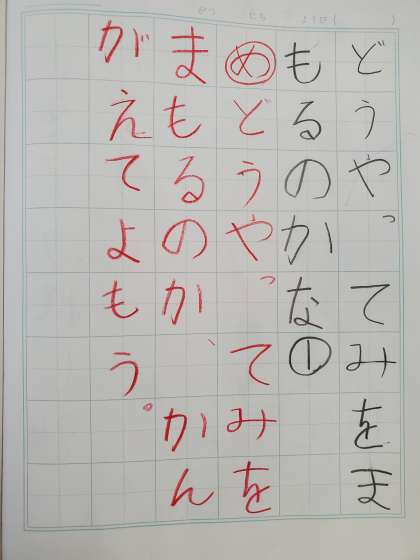 がつ にち ようび( )
どうやってみをま
もるのかな①
めどうやってみを
まもるのか、かん
がえてよもう。